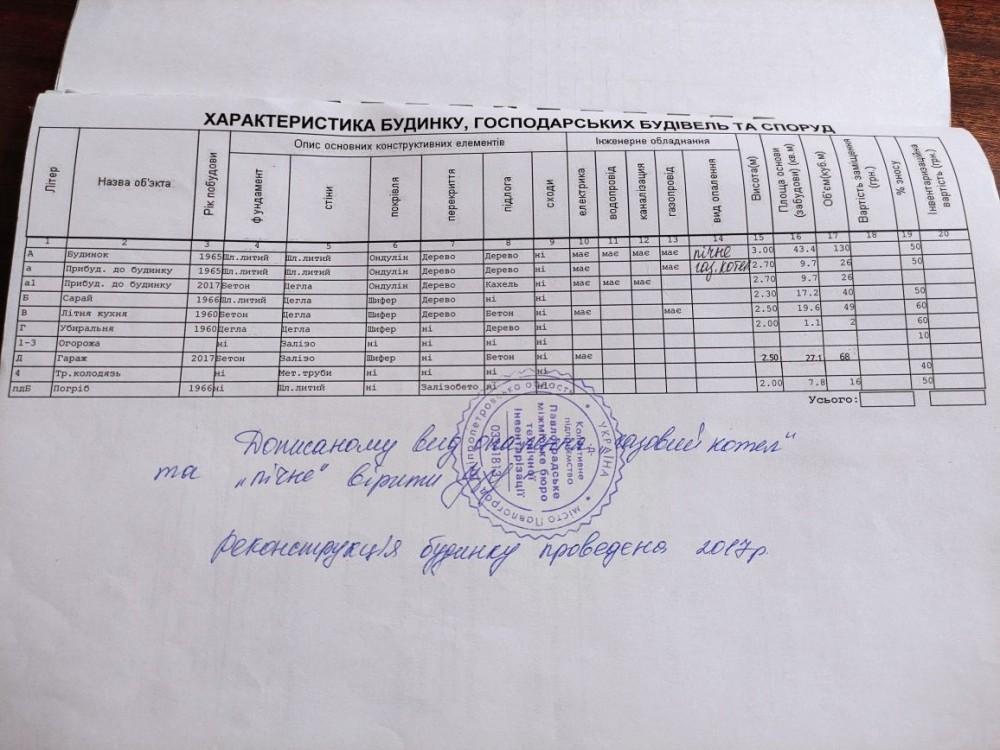 ХАРАКТЕРИСТИКА БУДИНКУ, ГОСПОДАРСЬКИХ БУДІВЕЛЬ ТА СПОРУД
Літер Назва об'экта Рік побудови Опис основних конструктивних елементів Інженерне обладнання Висота(м) Площа основи (забудови) (кв.м) Об'єм(куб.м) Вартість заміщення (грн.) % зносу Інвентаризаційна вартість (грн.)
фундамент стіни покрівля перекриття підлога сходи електрика водопровід каналізація газопровід вид опалення
1 2 3 4 5 6 7 8 9 10 11 12 13 14 15 16 17 18 19 20
А Будинок 1965 Шл.литий Шл.литий Ондулін Дерево Дерево ні має має має має пічне 3.00 43.4 130 50
а Прибуд. до будинку 1965 Шл.литий Шл.литий Ондулін Дерево Дерево ні має газ.котел 2.70 9.7 26 50
а1 Прибуд. до будинку 2017 Бетон Цегла Ондулін Дерево Кахель ні має має має 2.70 9.7 26
Б Сарай 1966 Шл.литий Цегла Шифер Дерево ні ні 2.30 17.2 40 50
В Літня кухня 1960 Бетон Цегла Шифер Дерево Бетон ні має має 2.50 19.6 49 60
Г Убиральня 1960 Цегла Цегла Шифер ні Дерево ні 2.00 1.1 2 60
1-3 Огорожа ні Залізо ні ні ні ні 10
Д Гараж 2017 Бетон Залізо Шифер ні Бетон ні має 2.50 27.1 68
4 Тр.колодязь ні Мет.труби ні ні ні ні 40
пдБ Погріб 1966 ні Шл.литий ні Залізобето ні ні 2.00 7.8 16 50
Усього:
Дописаному вид опалення "газовий котел"
та "пічне" вірити
УКРАЇНА
Дніпропетровська область
місто Павлоград
Колективне підприємство
Павлоградське
міжміське бюро
технічної
інвентаризації
Реконструкція будинку проведена 2017р.